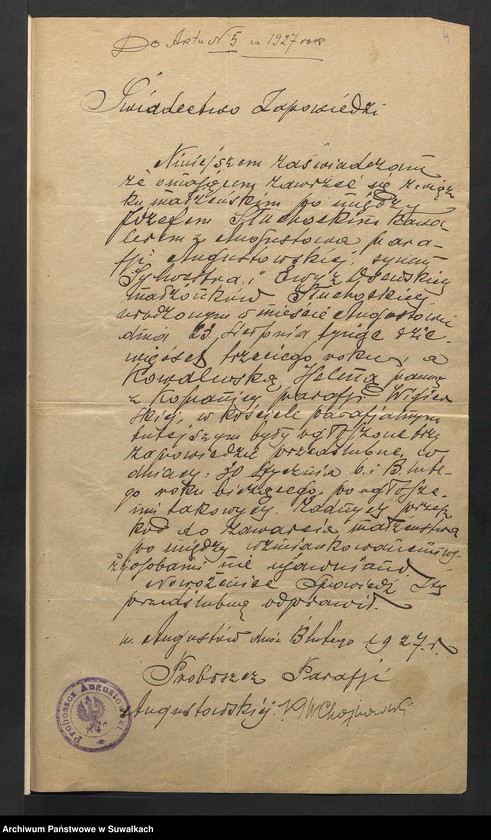 Do Aktu N 5 za 1927 rok
4
Świadectwo Zapowiedzi
Niniejszem zaświadczam
że o mającem zawrzeć się związ
ku małżeńskim po między
Józefem Stuchockim kawa
lerem z Augustowa para-
fji Augustowskiej, synem
Sylwestra i Ewy z
małżonków Stuchockiej
urodzonym w mieście Augustowi
dnia 23 sierpnia tysiąc dzie-
więćset trzeciego roku, a
Kowalewską Heleną panną
z Kopanicy parafji Wigier
skiej, w kościele parafjalnym
tutejszym były ogłoszone trzy
zapowiedzie przedślubne, w
dniach: 30 stycznia 6 i lute-
go roku bieżącego, po ogłosze-
niu takowych żadnych przesz
kód do zawarcia małżeństwa
po między wzmiankowanemi
osobami nie ujawniano
Nowożeniec Spowiedź Św
przedślubną odprawił.
w. Augustów dnia lutego 1927 r.
Proboszcz Parafji
Augustowskiej.
Proboszcz Augustowski
Archiwum Państwowe w Suwałkach